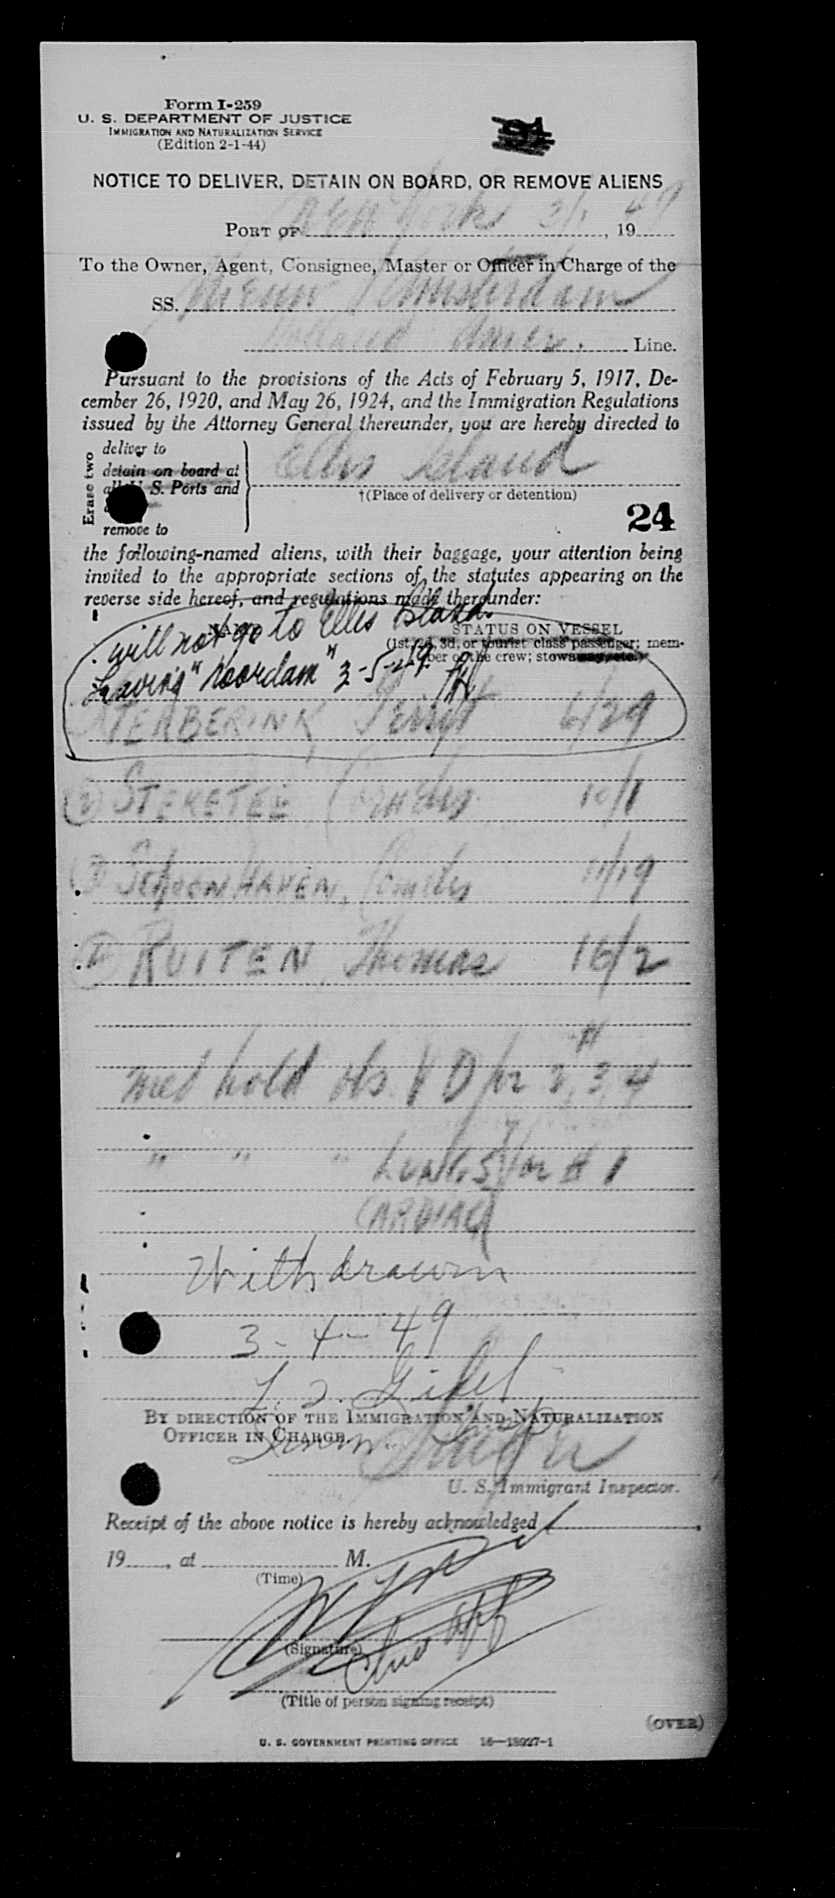 Form I-259
U. S. DEPARTMENT OF JUSTICE
IMMIGRATION AND NATURALIZATION SERVICE
(Edition 2-1-44)
NOTICE TO DELIVER, DETAIN ON BOARD, OR REMOVE ALIENS
PORT OF New York 3/1, 1949
To the Owner, Agent, Consignee, Master or Officer in Charge of the
SS. Nieuw Amsterdam
Holland Amer. Line.
Pursuant to the provisions of the Acts of February 5, 1917, De-
cember 26, 1920, and May 26, 1924, and the Immigration Regulations
issued by the Attorney General thereunder, you are hereby directed to
Erase two
deliver to
detain on board at
all U. S. Ports and
remove to
Ellis Island
†(Place of delivery or detention)
24
the following-named aliens, with their baggage, your attention being
invited to the appropriate sections of the statutes appearing on the
reverse side hereof, and regulations made thereunder:
NAME STATUS ON VESSEL
(1st, 2d, 3d, or tourist class passenger; mem-
ber of the crew; stowaway, etc.)
will not go to Ellis Island.
Leaving "Noordam" 3-5-49
TEABERINK, Gerrit 6/29
(2) STEKETEE, 10/1
(3) SCHOONHAVEN, Cornelis 11/19
(4) RUITEN, Thomas 16/2
med hold obs. V D for # 2, 3, 4
" " " LUNGS for # 1
CARDIAC
Withdrawn
3-4-49
BY DIRECTION OF THE IMMIGRATION AND NATURALIZATION
OFFICER IN CHARGE
U. S. Immigrant Inspector.
Receipt of the above notice is hereby acknowledged
19 , at M.
(Time)
(Signature)
(Title of person signing receipt)
(OVER)
U. S. GOVERNMENT PRINTING OFFICE 16—18927-1